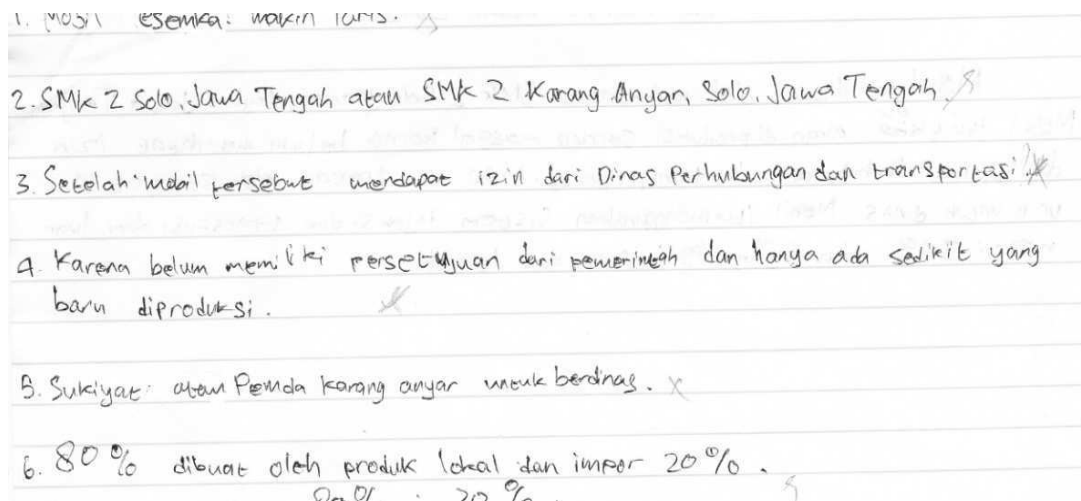 1. Mobil esemka. makin laris.
2. SMK 2 Solo, Jawa Tengah atau SMK 2 Karang Anyar, Solo, Jawa Tengah.
3. Setelah mobil tersebut mendapat izin dari Dinas Perhubungan dan transportasi.
4. Karena belum memiliki persetujuan dari pemerintah dan hanya ada sedikit yang
baru diproduksi.
5. Sukiyat atau Pemda Karang anyar untuk berdinas.
6. 80% dibuat oleh produk lokal dan impor 20%.
20%